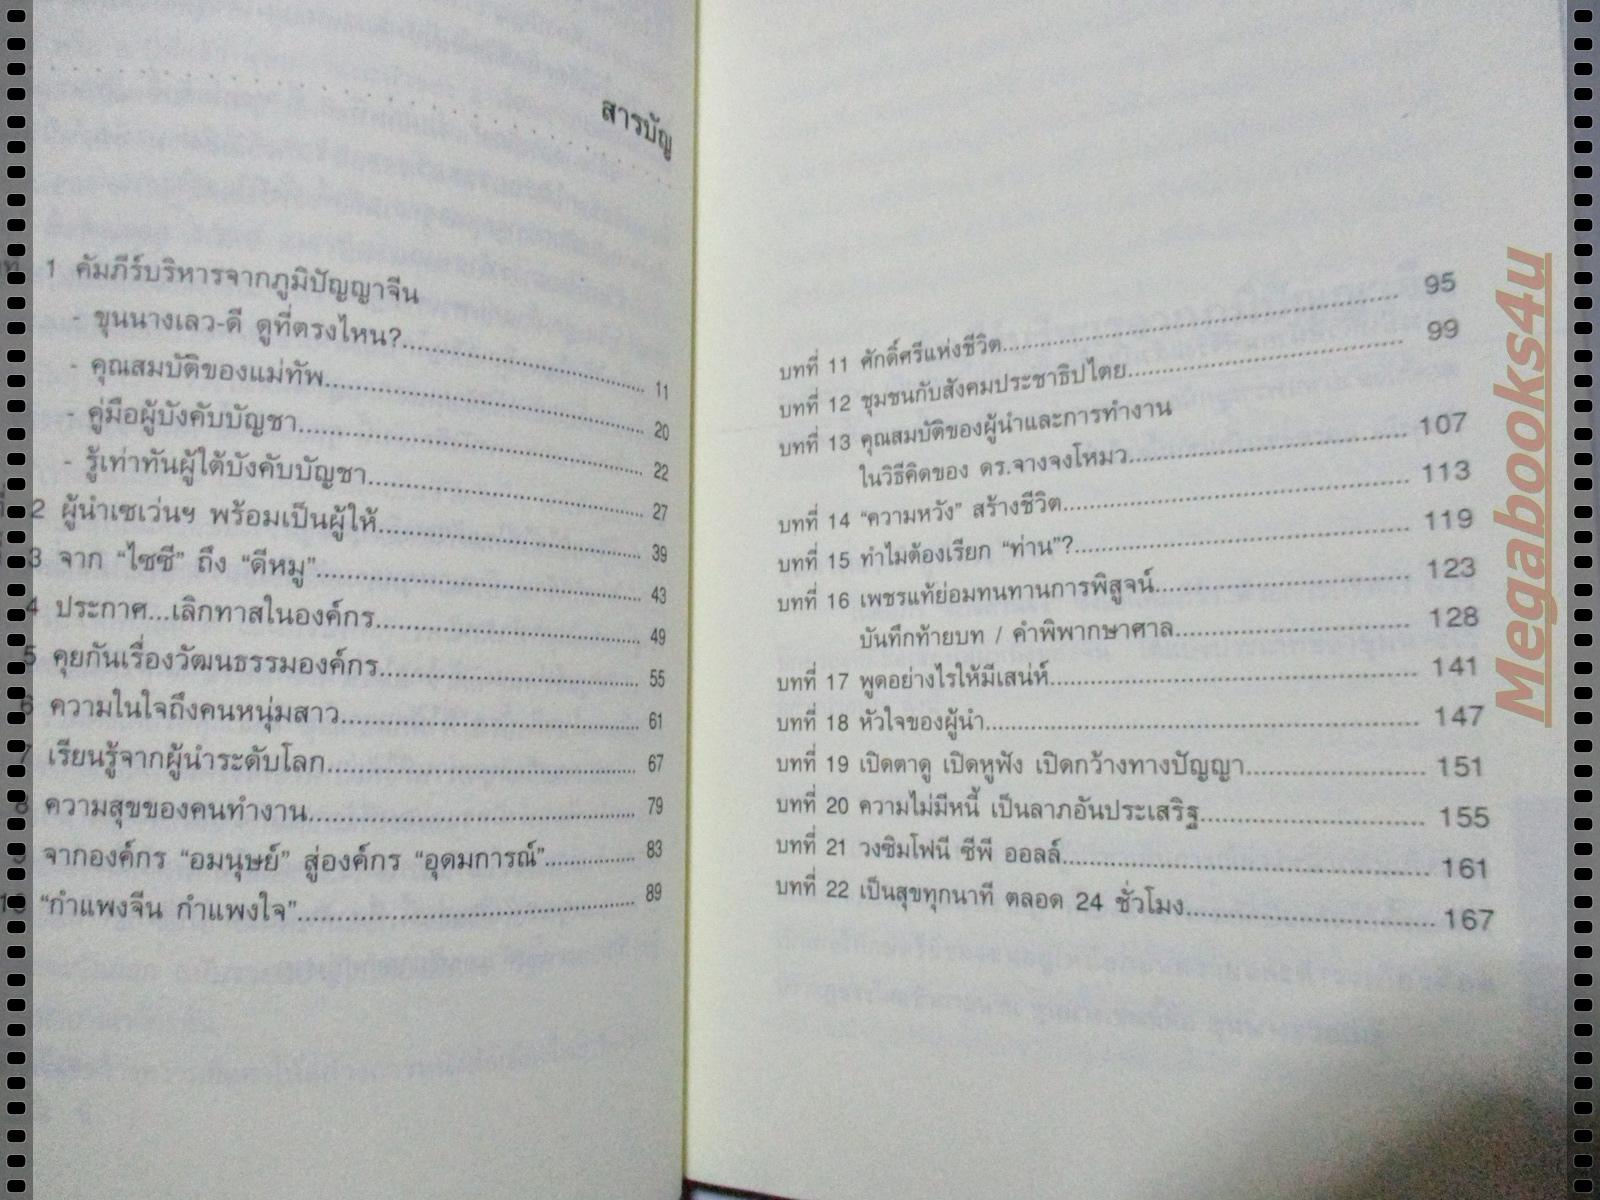 สารบัญ
1 คัมภีร์บริหารจากภูมิปัญญาจีน
- ขุนนางเลว-ดี ดูที่ตรงไหน?........................ 11
- คุณสมบัติของแม่ทัพ........................ 20
- คู่มือผู้บังคับบัญชา........................ 22
- รู้เท่าทันผู้ใต้บังคับบัญชา........................ 27
2 ผู้นำเซเว่นฯ พร้อมเป็นผู้ให้........................ 39
3 จาก “ไซซี” ถึง “ดีหมู”........................ 43
4 ประกาศ...เลิกทาสในองค์กร........................ 49
5 คุยกันเรื่องวัฒนธรรมองค์กร........................ 55
6 ความในใจถึงคนหนุ่มสาว........................ 61
7 เรียนรู้จากผู้นำระดับโลก........................ 67
8 ความสุขของคนทำงาน........................ 79
9 จากองค์กร “อมนุษย์” สู่องค์กร “อุดมการณ์”............ 83
10 “กำแพงจีน กำแพงใจ”........................ 89
บทที่ 11 ศักดิ์ศรีแห่งชีวิต........................ 95
บทที่ 12 ชุมชนกับสังคมประชาธิปไตย........................ 99
บทที่ 13 คุณสมบัติของผู้นำและการทำงาน
ในวิธีคิดของ ดร.จางจงโหมว........................ 107
บทที่ 14 “ความหวัง” สร้างชีวิต........................ 113
บทที่ 15 ทำไมต้องเรียก “ท่าน”?........................ 119
บทที่ 16 เพชรแท้ย่อมทนทานการพิสูจน์........................ 123
บันทึกท้ายบท / คำพิพากษาศาล........................ 128
บทที่ 17 พูดอย่างไรให้มีเสน่ห์........................ 141
บทที่ 18 หัวใจของผู้นำ........................ 147
บทที่ 19 เปิดตาดู เปิดหูฟัง เปิดกว้างทางปัญญา........................ 151
บทที่ 20 ความไม่มีหนี้ เป็นลาภอันประเสริฐ........................ 155
บทที่ 21 วงซิมโฟนี ซีพี ออลล์........................ 161
บทที่ 22 เป็นสุขทุกนาที ตลอด 24 ชั่วโมง........................ 167
Megabooks4u